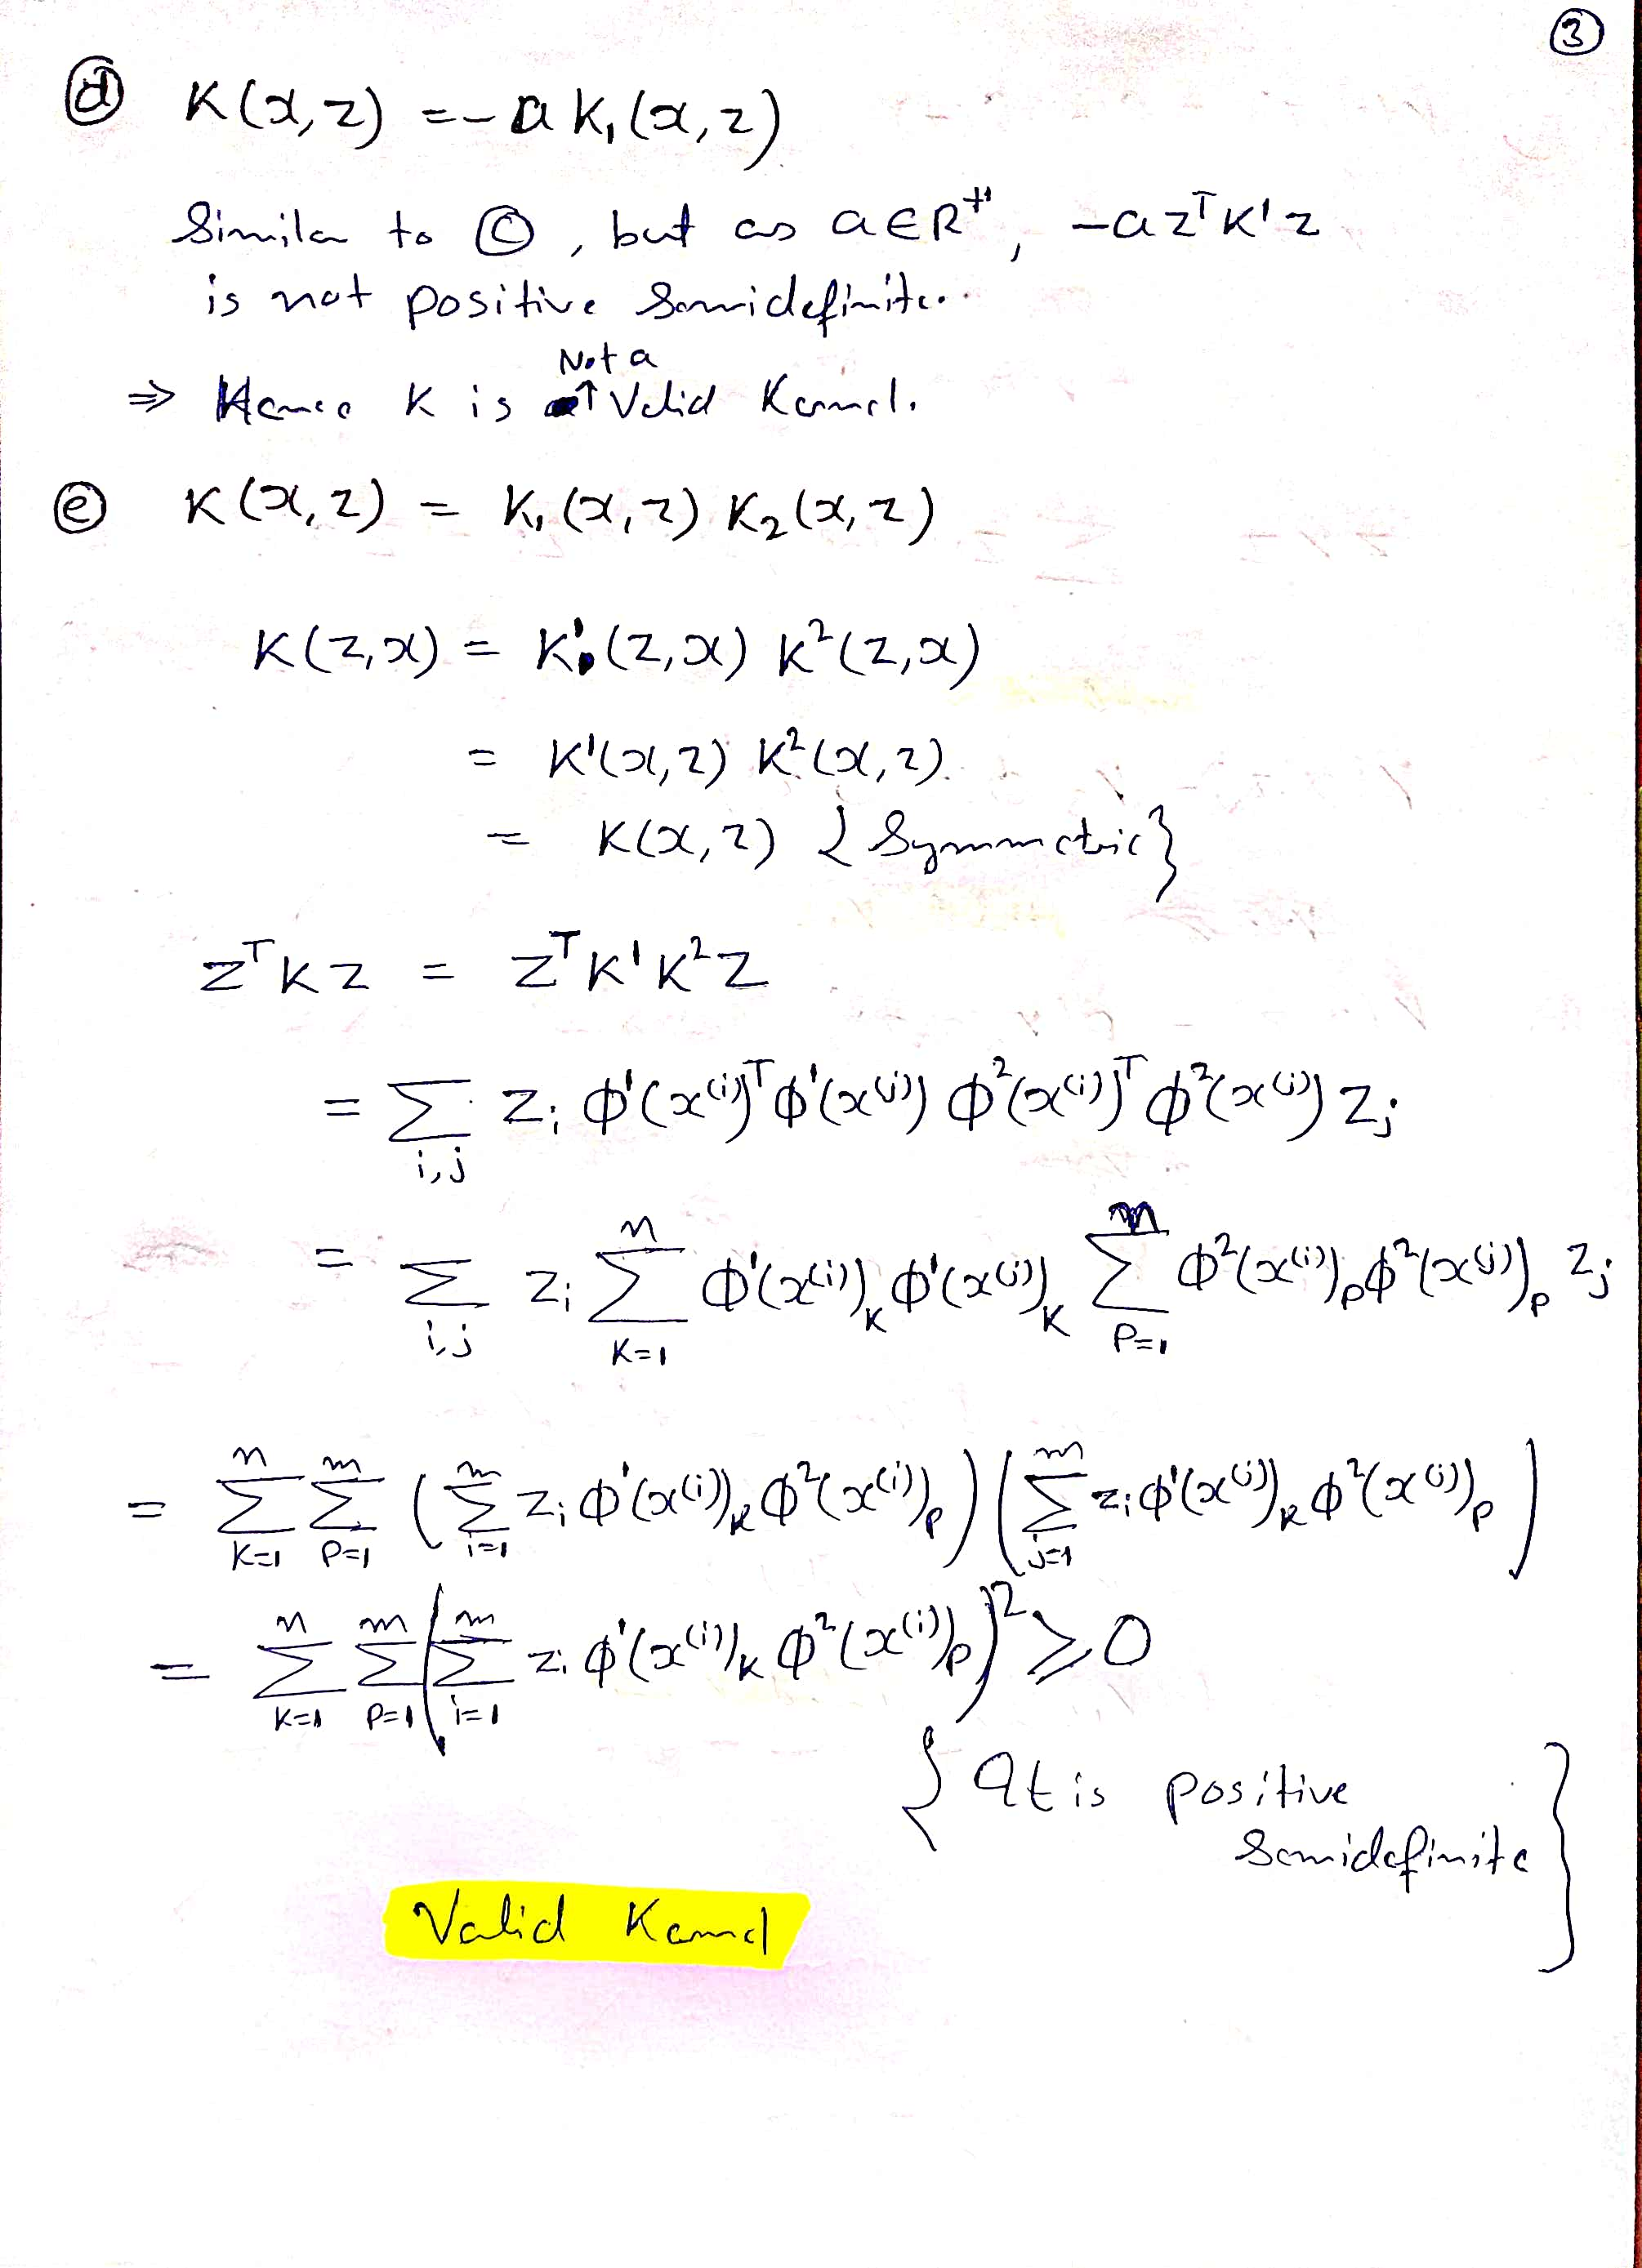 ③
ⓓ K(x,z) = -a K₁(x,z)
Similar to ⓒ, but as a ∈ R⁺, -a zᵀK¹z
is not positive Semidefinite.
Not a
⇒ Hence K is ↑ Valid Kernel.
ⓔ K(x,z) = K₁(x,z) K₂(x,z)
K(z,x) = K¹(z,x) K²(z,x)
= K¹(x,z) K²(x,z)
= K(x,z) { Symmetric }
zᵀKz = zᵀK¹K²z
= Σ_{i,j} z_i φ¹(x⁽ⁱ⁾)ᵀ φ¹(x⁽ʲ⁾) φ²(x⁽ⁱ⁾)ᵀ φ²(x⁽ʲ⁾) z_j
= Σ_{i,j} z_i Σ_{K=1}^{n} φ¹(x⁽ⁱ⁾)_K φ¹(x⁽ʲ⁾)_K Σ_{P=1}^{m} φ²(x⁽ⁱ⁾)_P φ²(x⁽ʲ⁾)_P z_j
= Σ_{K=1}^{n} Σ_{P=1}^{m} ( Σ_{i=1}^{m} z_i φ¹(x⁽ⁱ⁾)_K φ²(x⁽ⁱ⁾)_P ) ( Σ_{j=1}^{m} z_i φ¹(x⁽ʲ⁾)_K φ²(x⁽ʲ⁾)_P )
= Σ_{K=1}^{n} Σ_{P=1}^{m} ( Σ_{i=1}^{m} z_i φ¹(x⁽ⁱ⁾)_K φ²(x⁽ⁱ⁾)_P )² ≥ 0
{ It is positive
Semidefinite }
Valid Kernel